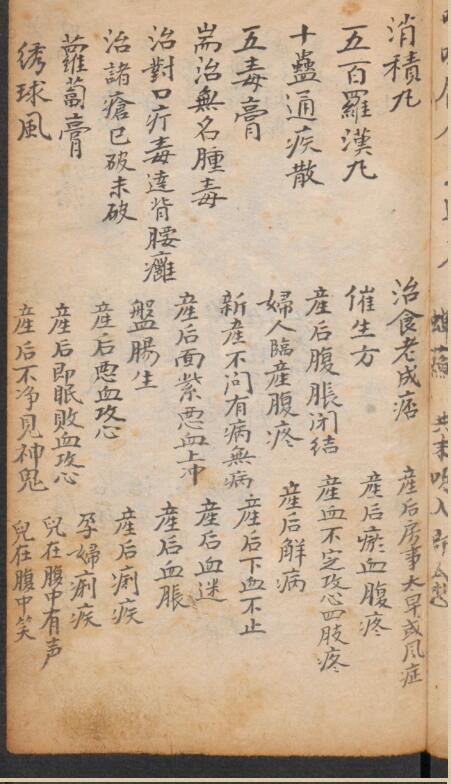 消積九
五百羅漢九
十蠱通疾散
五毒膏
耑治無名腫毒
治對口疔毒達背腰癰
治諸瘡已破未破
蘿蔔膏
绣球風
治食老成痞
催生方
産后腹脹闭结
婦人臨産腹疼
新産不问有病無病
産后面紫悪血上冲
盤腸生
産后悪血攻心
産后即眠敗血攻心
産后不净見神鬼
産后房事大早或风症
産后瘀血腹疼
産血不定攻心四肢疼
産后解病
産后下血不止
産后血迷
産后血脹
産后痢疾
孕婦痢疾
兒在腹中有声
兒在腹中笑